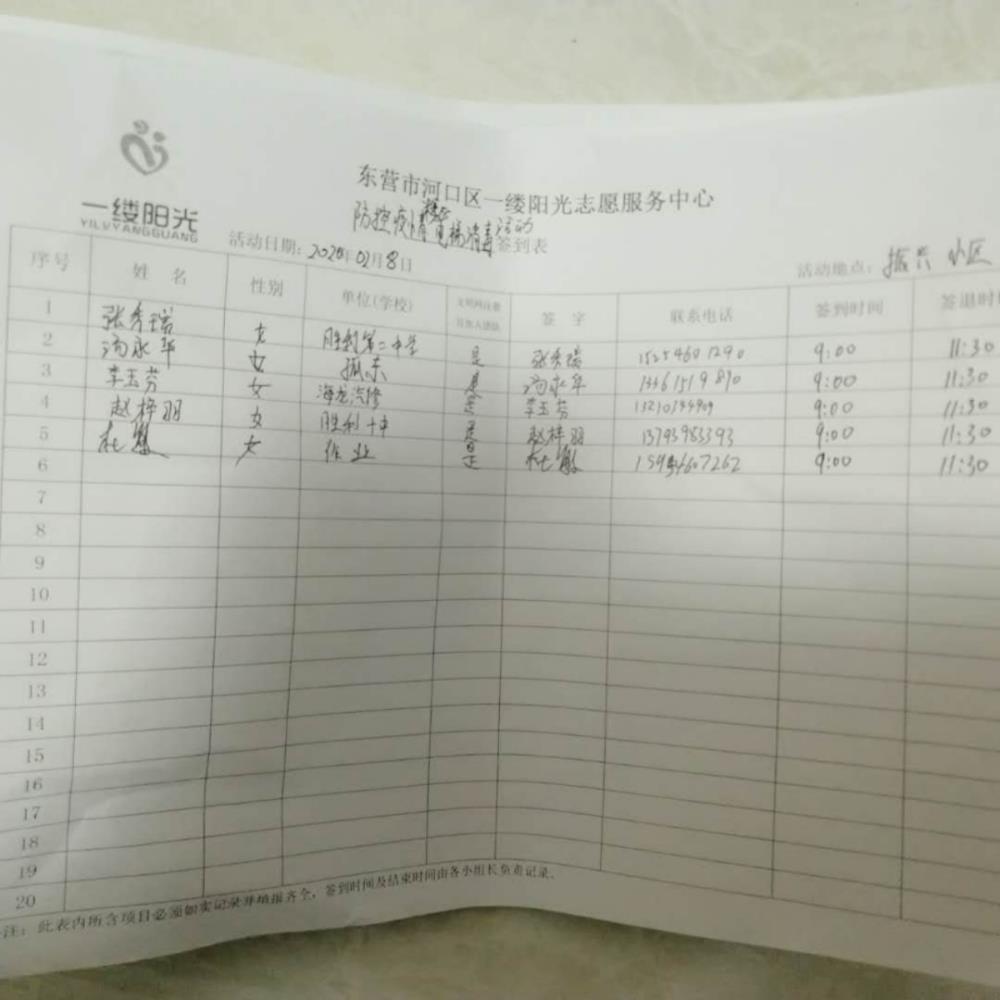 一缕阳光
YILVYANGGUANG
东营市河口区一缕阳光志愿服务中心
防控疫情 电梯消毒活动签到表
活动日期：2020年02月8日 活动地点：振兴小区
序号 姓名 性别 单位(学校) 签字 联系电话 签到时间 签退时
1 张秀瑞 女 胜利第二中学 是 张秀瑞 9:00 11:30
2 冯永华 女 孤东 是 冯永华 9:00 11:30
3 李玉芬 女 海龙汽修 是 李玉芬 9:00 11:30
4 赵梓羽 女 胜利一中 是 赵梓羽 13793983393 9:00 11:30
5 杜 女 作业 是 杜 9:00 11:30
6
7
8
9
10
11
12
13
14
15
16
17
18
19
20
注：此表内所含项目必须如实记录并填报齐全，签到时间及结束时间由各小组长负责记录.